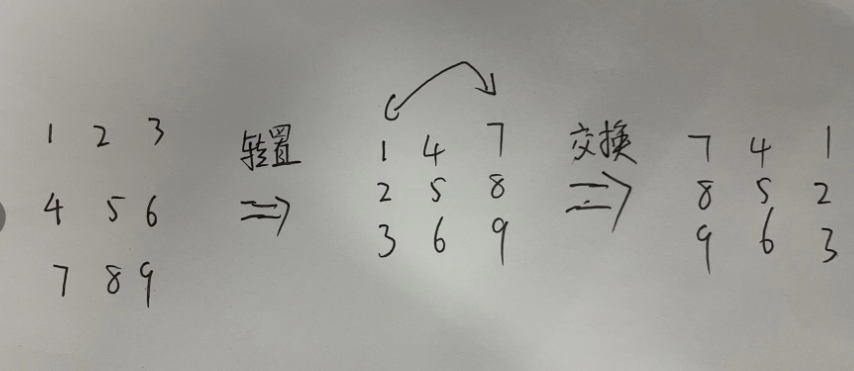 1 2 3
4 5 6
7 8 9
转置
⇒
1 4 7
2 5 8
3 6 9
交换
⇒
7 4 1
8 5 2
9 6 3